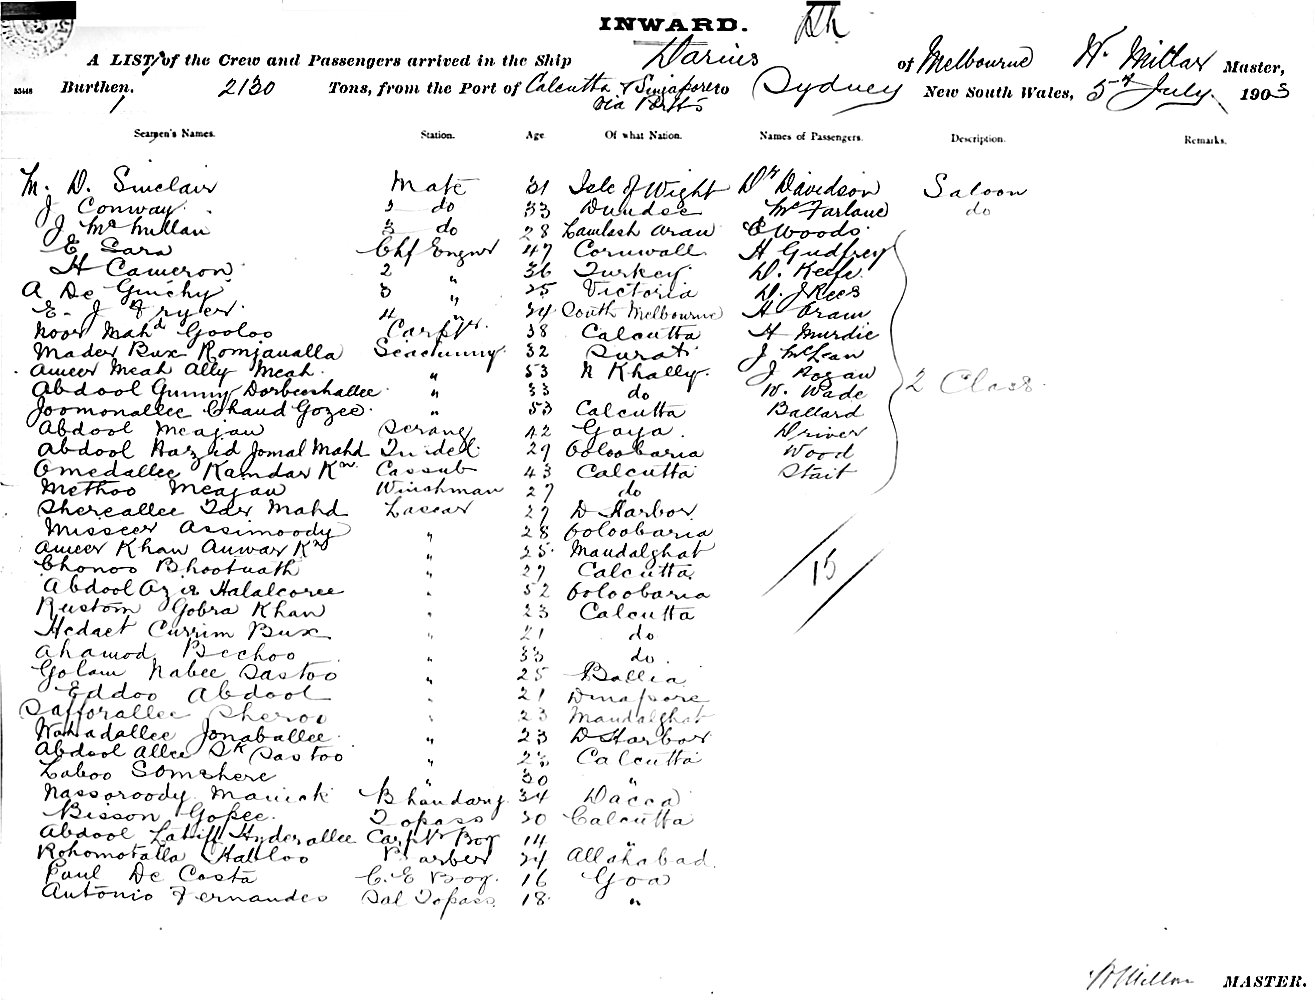 INWARD.
A LIST of the Crew and Passengers arrived in the Ship Darius of Melbourne H. Millar Master,
Burthen. 2130 Tons, from the Port of Calcutta & Singapore Sydney New South Wales, 5th July 1903
via Ports
Seamen's Names. Station. Age Of what Nation. Names of Passengers. Description. Remarks.
M. D. Sinclair Mate 31 Isle of Wight Dr Davidson Saloon
J Conway 2 do 33 Dundee McFarlane do
J McMillan 3 do 28 Lamlash Aran E Woods
E Sara Chf Enginr 47 Cornwall H Gudfrey
H Cameron 2 " 36 Turkey D. Keefe
A De Guichy 3 " 25 Victoria D. J Rees
E. J Fryer 4 " 24 South Melbourne H Oram
Noor Mahd Gooloo Carptr 38 Calcutta H Murdie
Mader Bux Romjanalla Seacunny 32 Surat J McLean
Ameer Meah Ally Meah " 53 N Khally J Rogan
Abdool Gunny Dorbeshallee " 33 do W. Wade 2 Class
Joomonallee Chaud Gozee " 53 Calcutta Ballard
Abdool Meajan Serang 42 Gaya Driver
Abdool Hazid Jomal Mahd Tindell 29 Ooloobaria Wood
Omedallee Kamdar Kn Cassub 43 Calcutta Stait
Methoo Meajan Winchman 27 do
Shereallee Tar Mahd Lascar 27 D Harbor
Misseer Assimoody " 28 Ooloobaria
Ameer Khan Anwar Kn " 25 Mandalghat 15
Chonoo Bhootnath " 27 Calcutta
Abdool Aziz Halalcoree " 52 Ooloobaria
Rustom Gobra Khan " 23 Calcutta
Hedaet Currim Bux " 21 do
Ahamod Bechoo " 33 do
Golam Nabee Sastoo " 25 Ballia
Eddoo Abdool " 21 Dinapore
Safforallee Sheroo " 23 Mandalghat
Wahadallee Jonaballee " 23 D Harbor
Abdool Allee Sk Sastoo " 23 Calcutta
Laboo Somshere " 30 "
Nassoroody Manick Bhandary 34 Dacca
Bisson Gopee Topass 30 Calcutta
Abdool Latiff Hyderallee Carptr Boy 14 "
Rohomotalla Habloo Barber 24 Allahabad
Paul De Costa C. E Boy 16 Goa
Antonio Fernandes Sal Topass 18 "
H Millar MASTER.